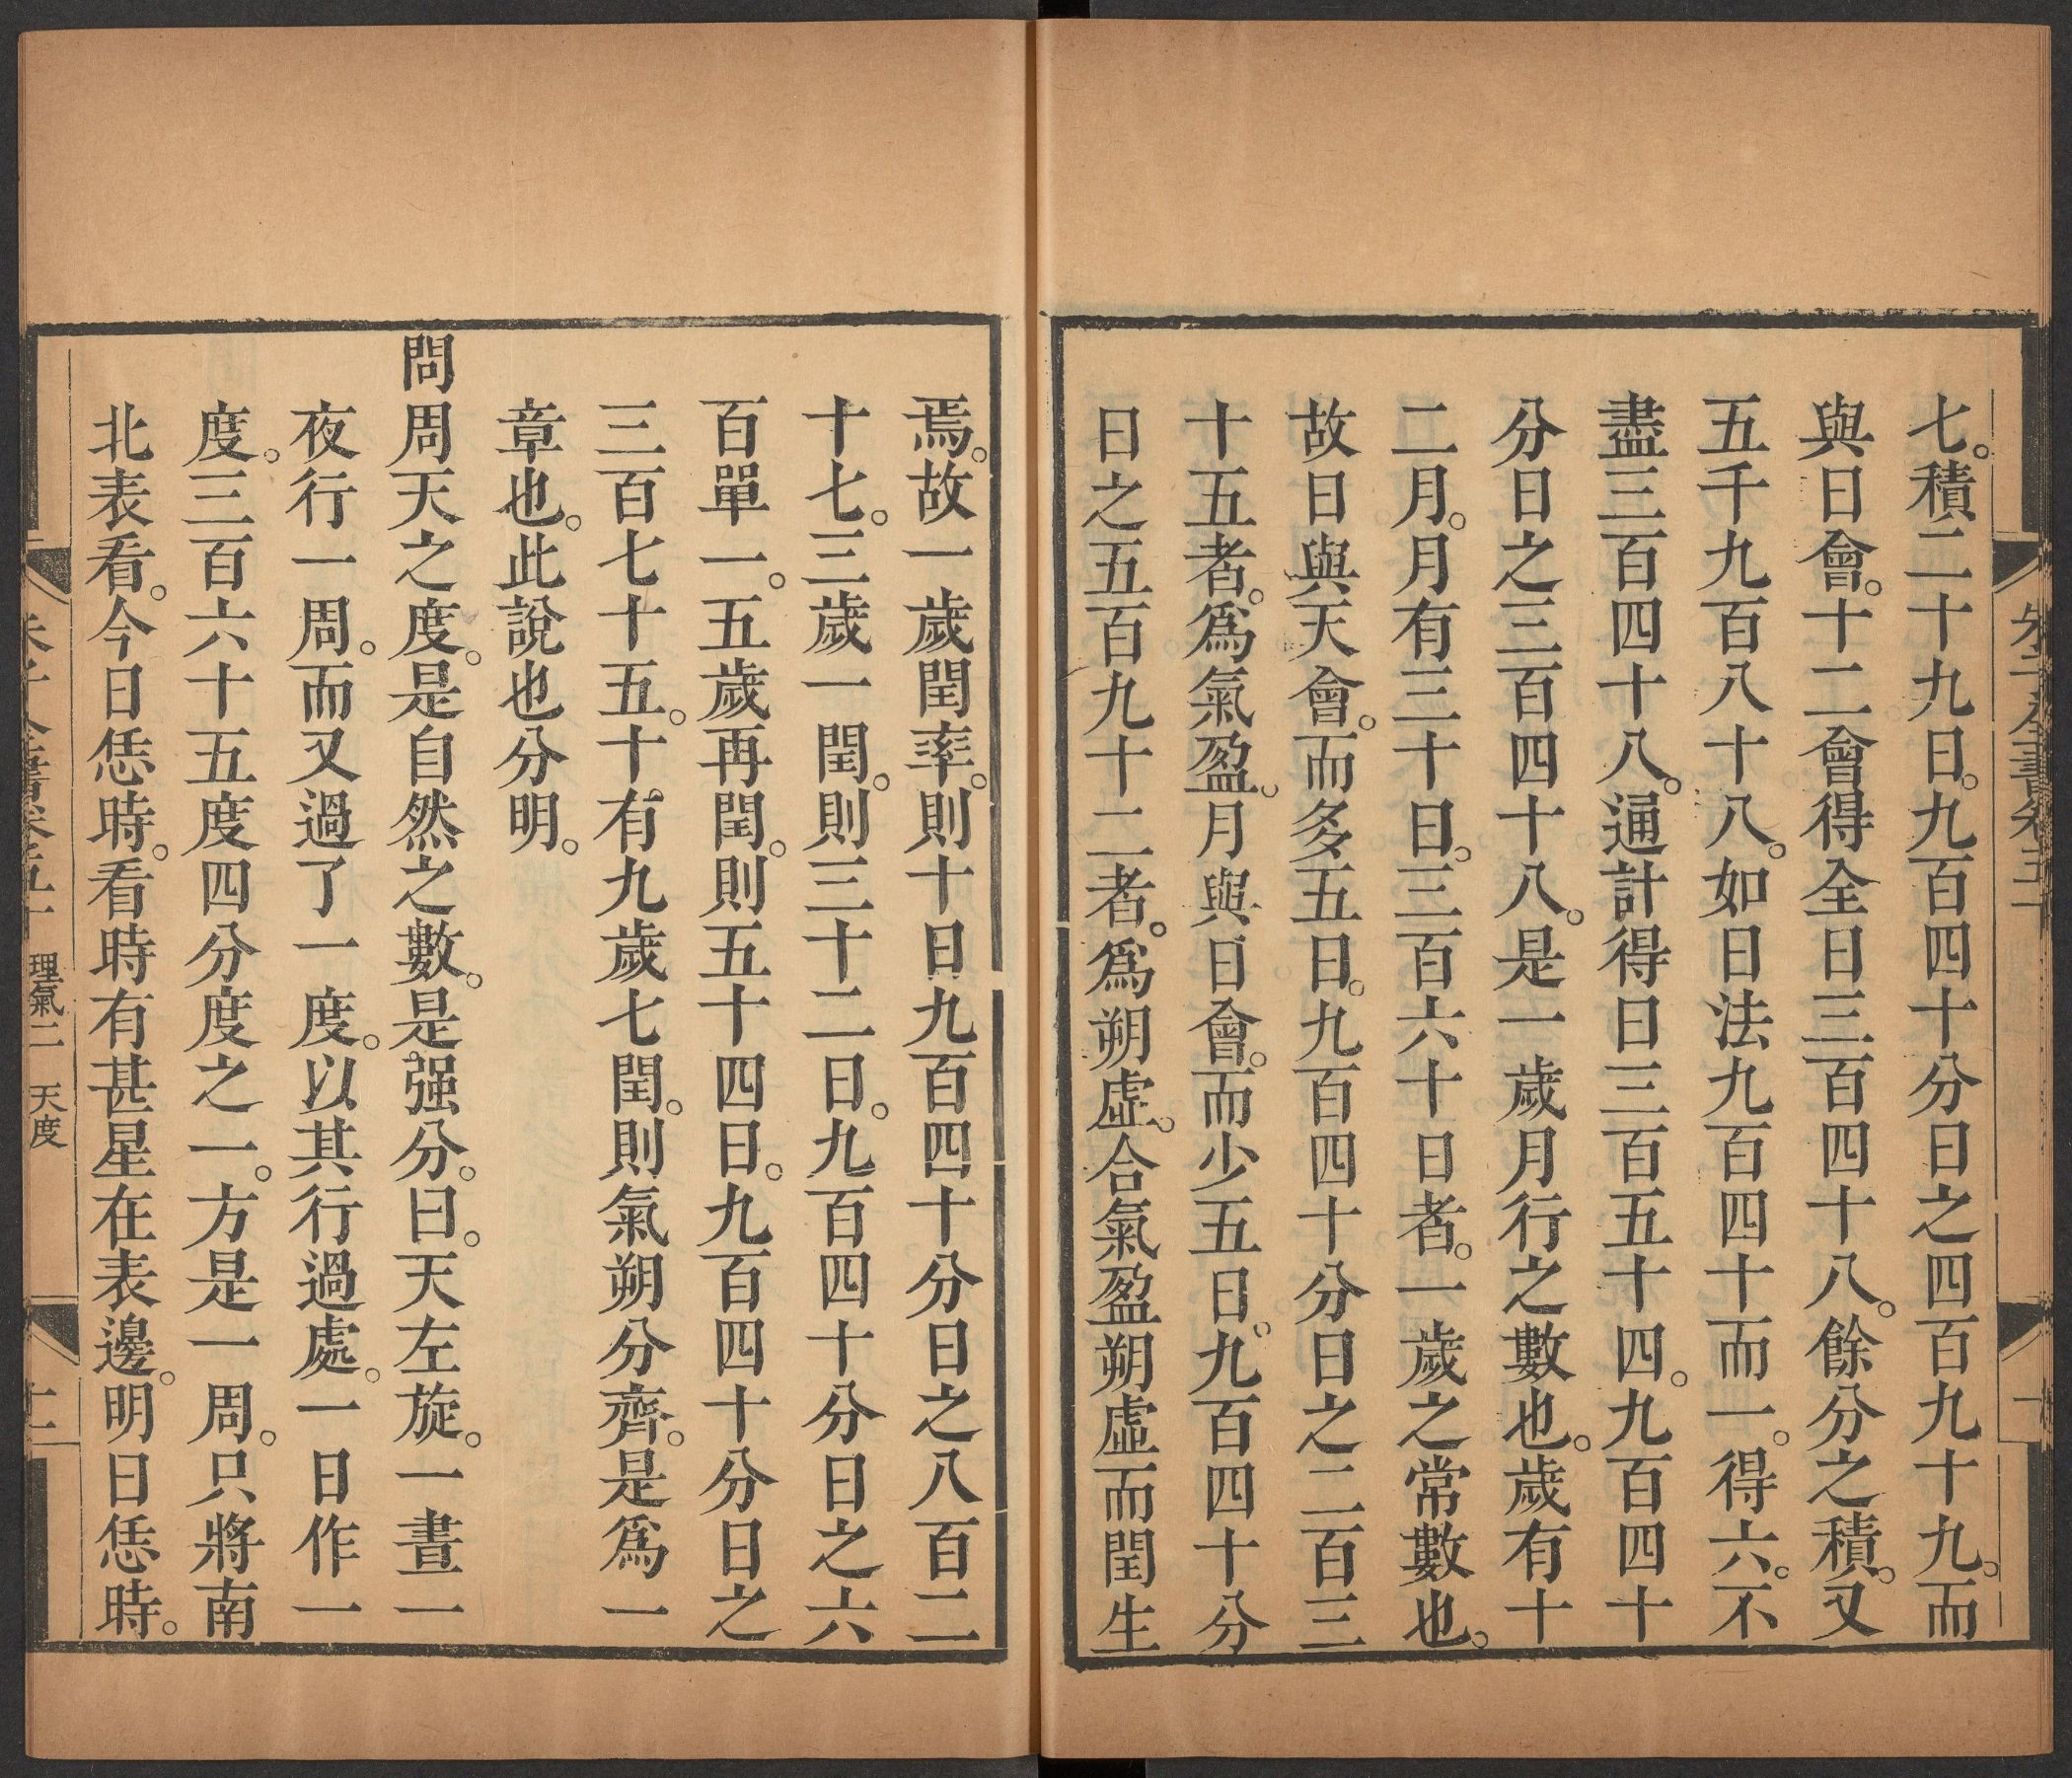 七。積二十九日。九百四十分日之四百九十九。而
與日會。十二會得全日三百四十八。餘分之積。又
五千九百八十八。如日法九百四十而一。得六。不
盡三百四十八。通計得日三百五十四。九百四十
分日之三百四十八。是一歲月行之數也。歲有十
二月。月有三十日。三百六十日者。一歲之常數也。
故日與天會。而多五日。九百四十分日之二百三
十五者。爲氣盈。月與日會。而少五日。九百四十分
日之五百九十二者。爲朔虛。合氣盈朔虛而閏生
焉。故一歲閏率。則十日九百四十分日之八百二
十七。三歲一閏。則三十二日。九百四十分日之六
百單一。五歲再閏。則五十四日。九百四十分日之
三百七十五。十有九歲七閏。則氣朔分齊。是爲一
章也。此說也分明。
問周天之度。是自然之數。是强分。曰。天左旋。一晝一
夜行一周。而又過了一度。以其行過處。一日作一
度。三百六十五度四分度之一。方是一周。只將南
北表看。今日恁時。看時有甚星在表邊。明日恁時。
理氣二 天度